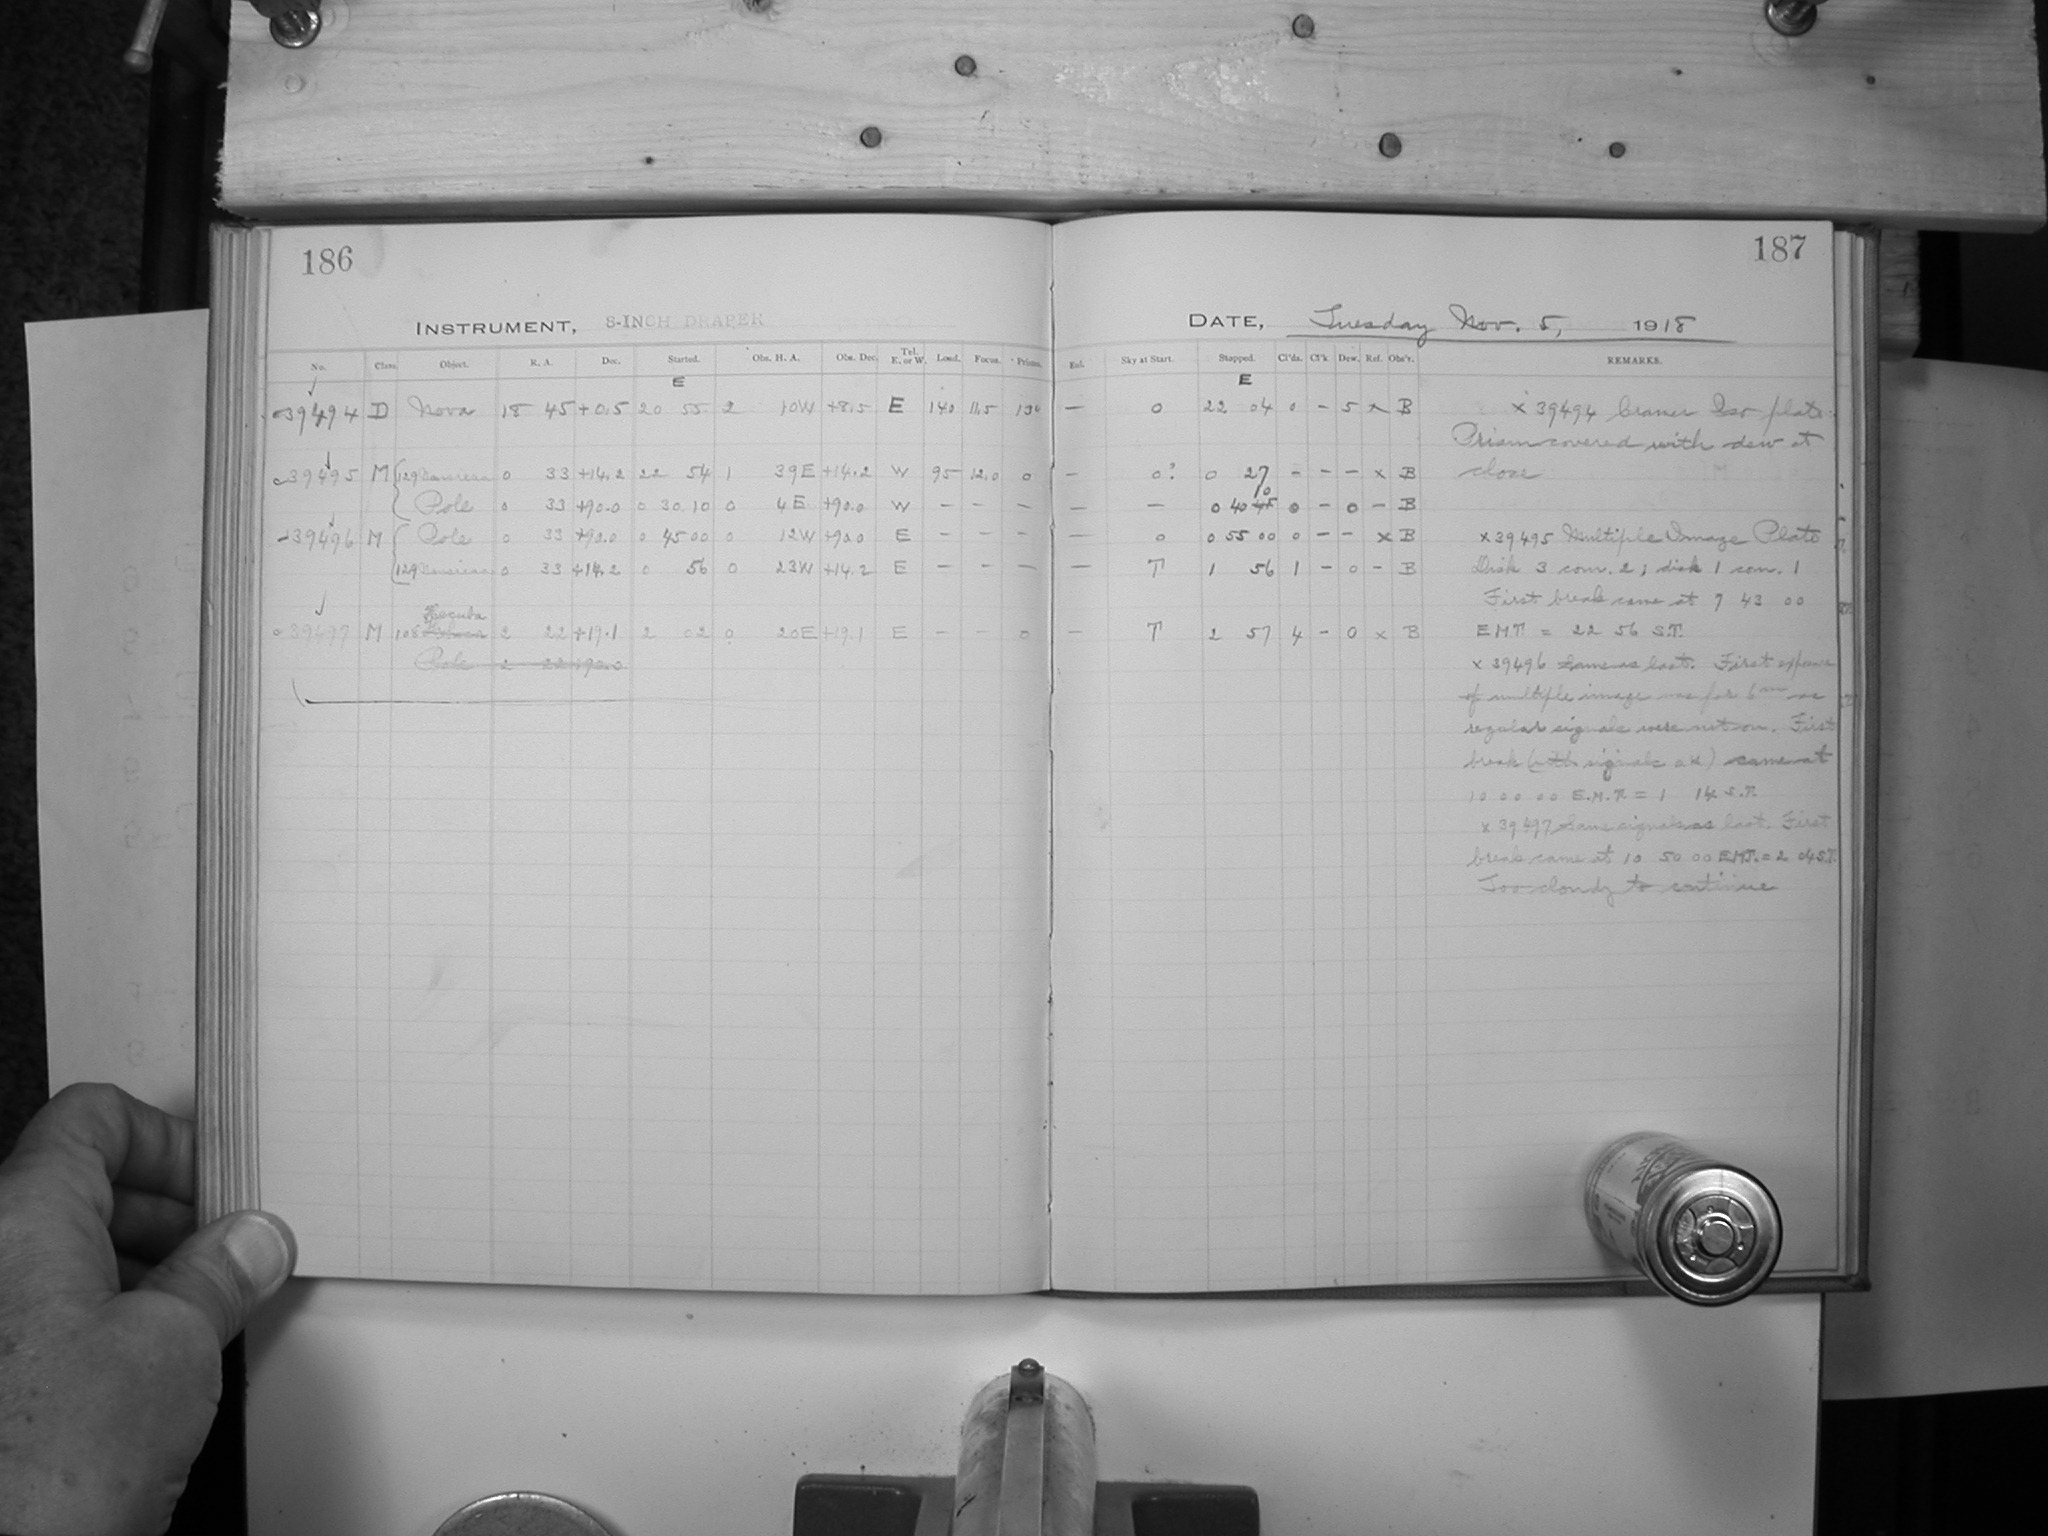 186
INSTRUMENT, 8-INCH DRAPER
No. Class Object. R. A. Dec. Started. Obs. H. A. Obs. Dec. Tel. E. or W. Load. Focus. Prisms.
E
39494 D Nova 18 45 +0.5 20 55 2 10W +8.5 E 140 11.5
39495 M 129 0 33 +14.2 22 54 1 39E +14.2 W 95 12.0 0
Pole 0 33 +90.0 0 30.10 0 4E +90.0 W - - -
39496 M Pole 0 33 +90.0 0 45 00 0 12W +90.0 E - - -
129 0 33 +14.2 0 56 0 23W +14.2 E - - -
Hecuba
39497 M 108 2 22 +19.1 2 02 0 20E +19.1 E - - 0
Pole 2 22 +90.0
187
DATE, Tuesday Nov. 5, 1918
Exl. Sky at Start. Stopped. Cl'ds. Cl'k Dew. Ref. Obs'r. REMARKS.
E
— 0 22 04 0 - 5 x B
— 0? 0 27 - - - x B
10
— — 0 40 45 0 - 0 - B
— 0 0 55 00 0 - - x B
— T 1 56 1 - 0 - B
— T 2 57 4 - 0 x B
x 39494 Cramer Iso plate.
Prism covered with dew at
close
x 39495 Multiple Image Plate
Disk 3 com. 2; disk 1 com. 1
First break came at 9 43 00
E.M.T. = 22 56 S.T.
x 39496 Same as last. First exposure
of multiple image was for 6m as
regular signals were not on. First
break (with signals OK) came at
10 00 00 E.M.T. = 1 14 S.T.
x 39497 Same signals as last. First
break came at 10 50 00 E.M.T. = 2 04 S.T.
Too cloudy to continue